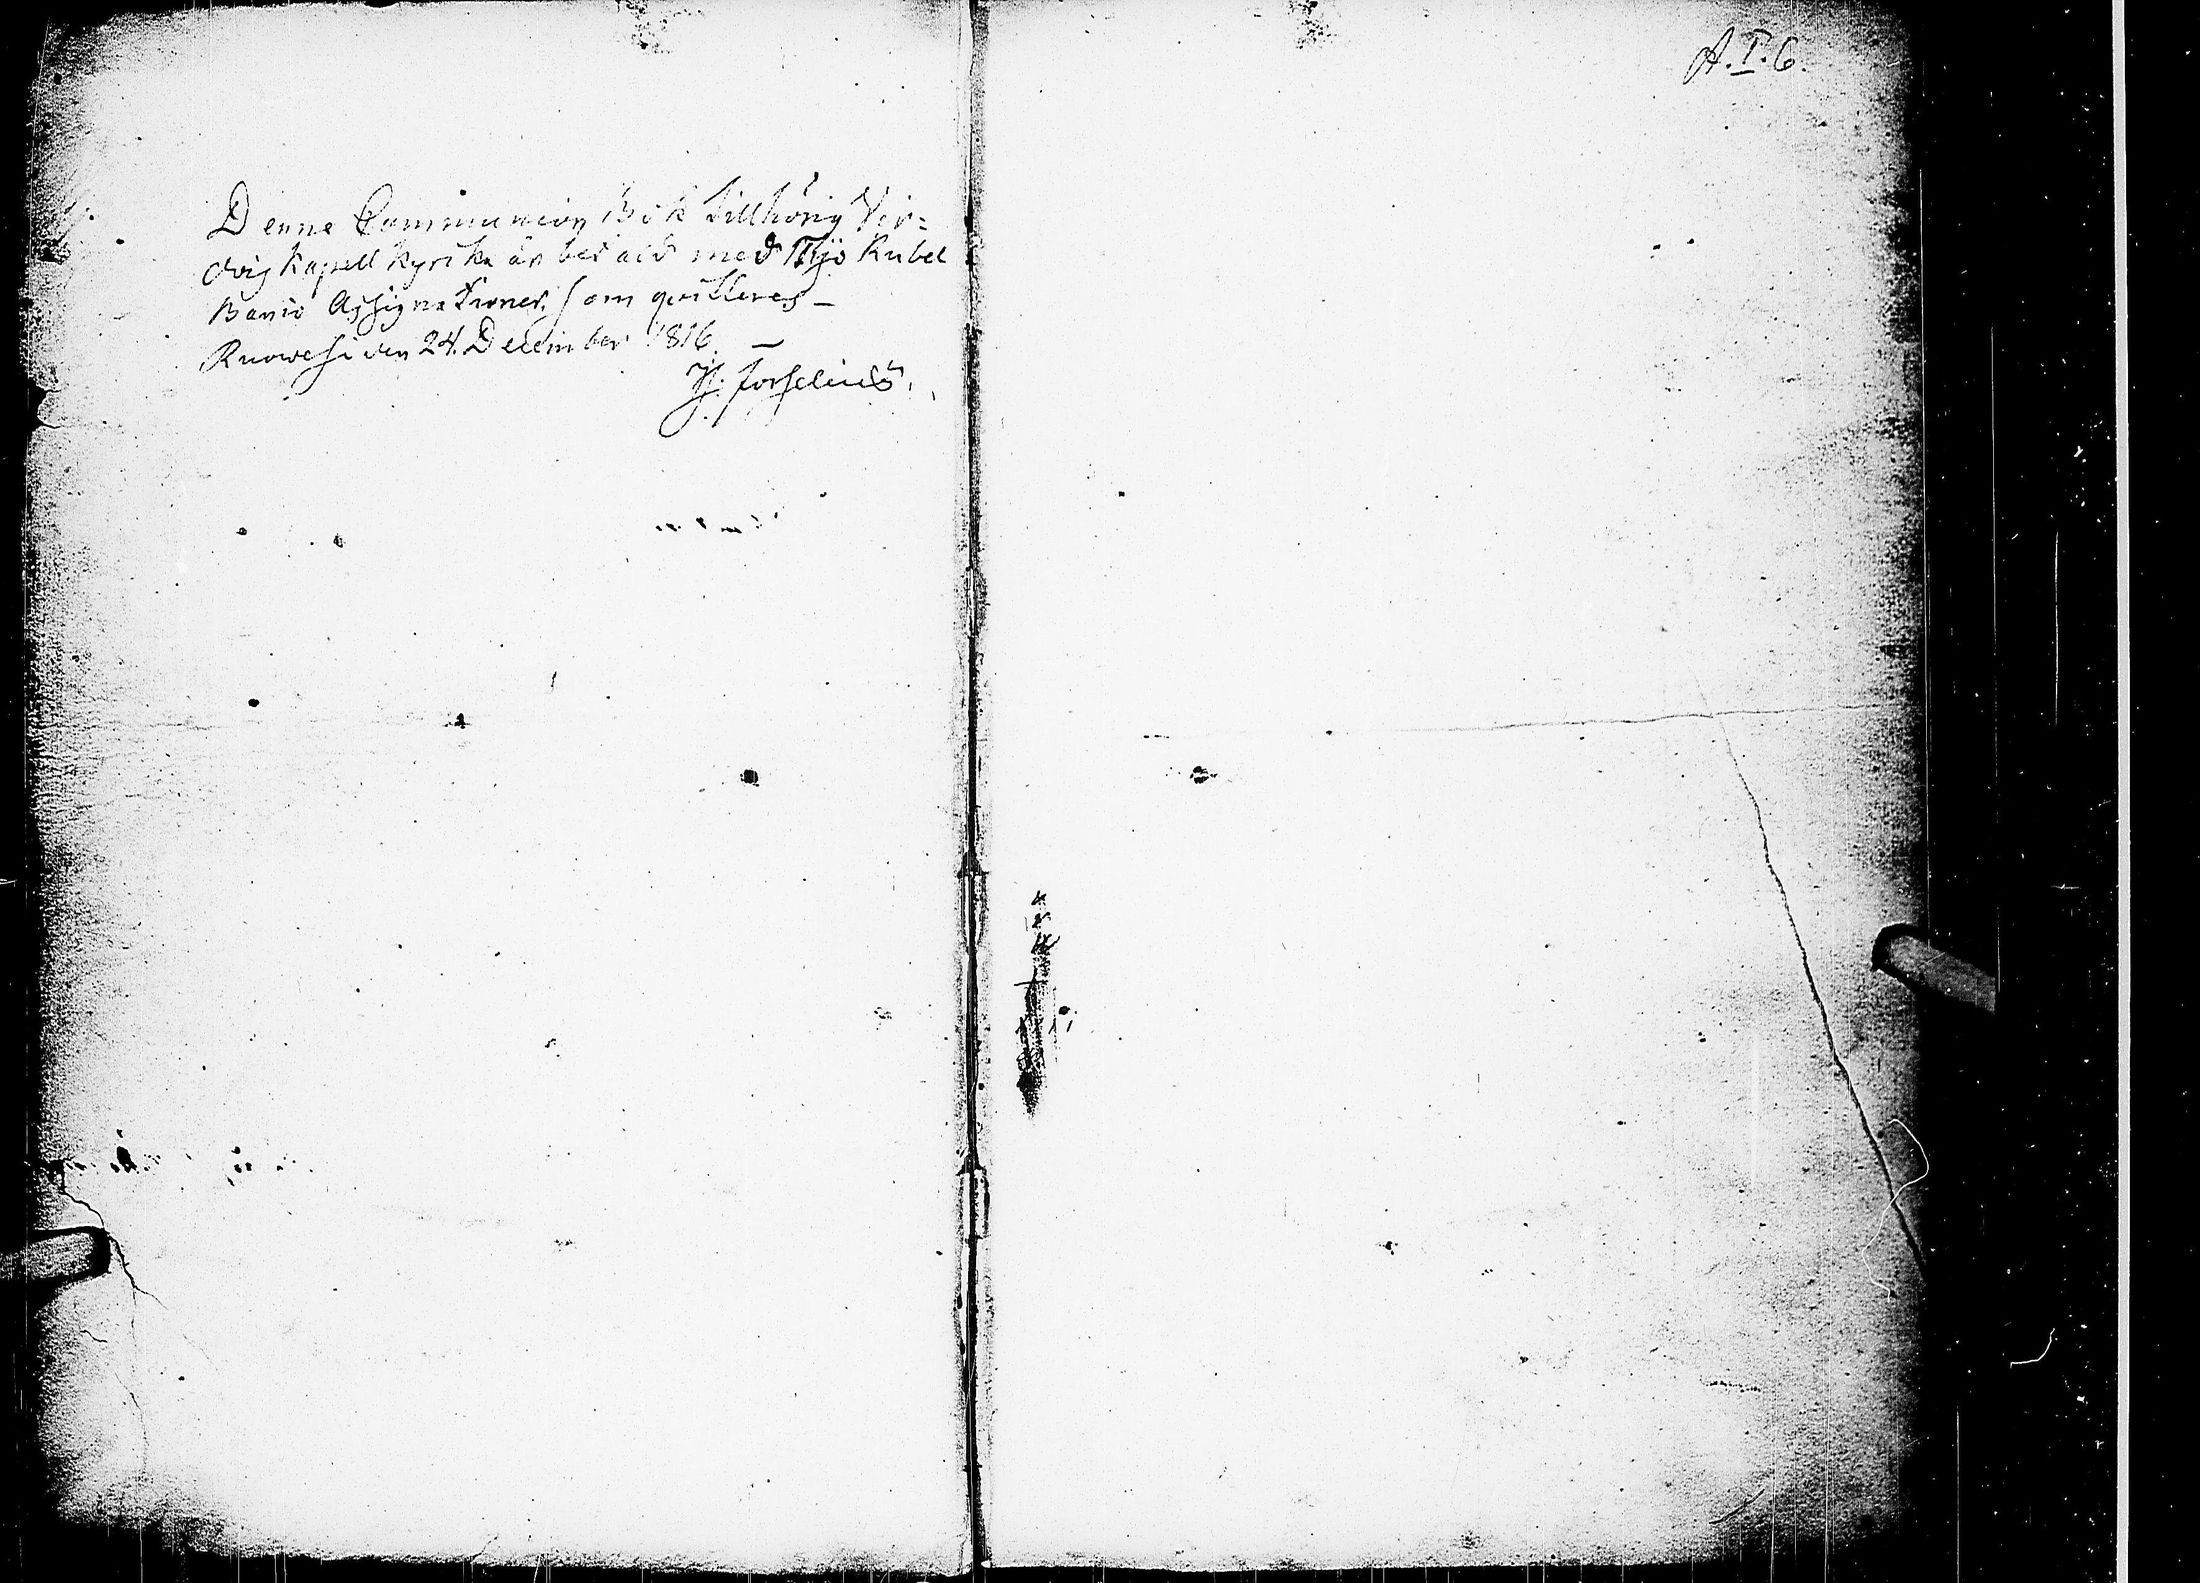 Denne Communion Bok tillhörig Vir=
dois kapell kyrika är betald med Tjio Rubel
Banco Assignationer, som qvitteras —
Ruowesi den 24. December 1816. —
Hj: Forselius.
A. I. 6.